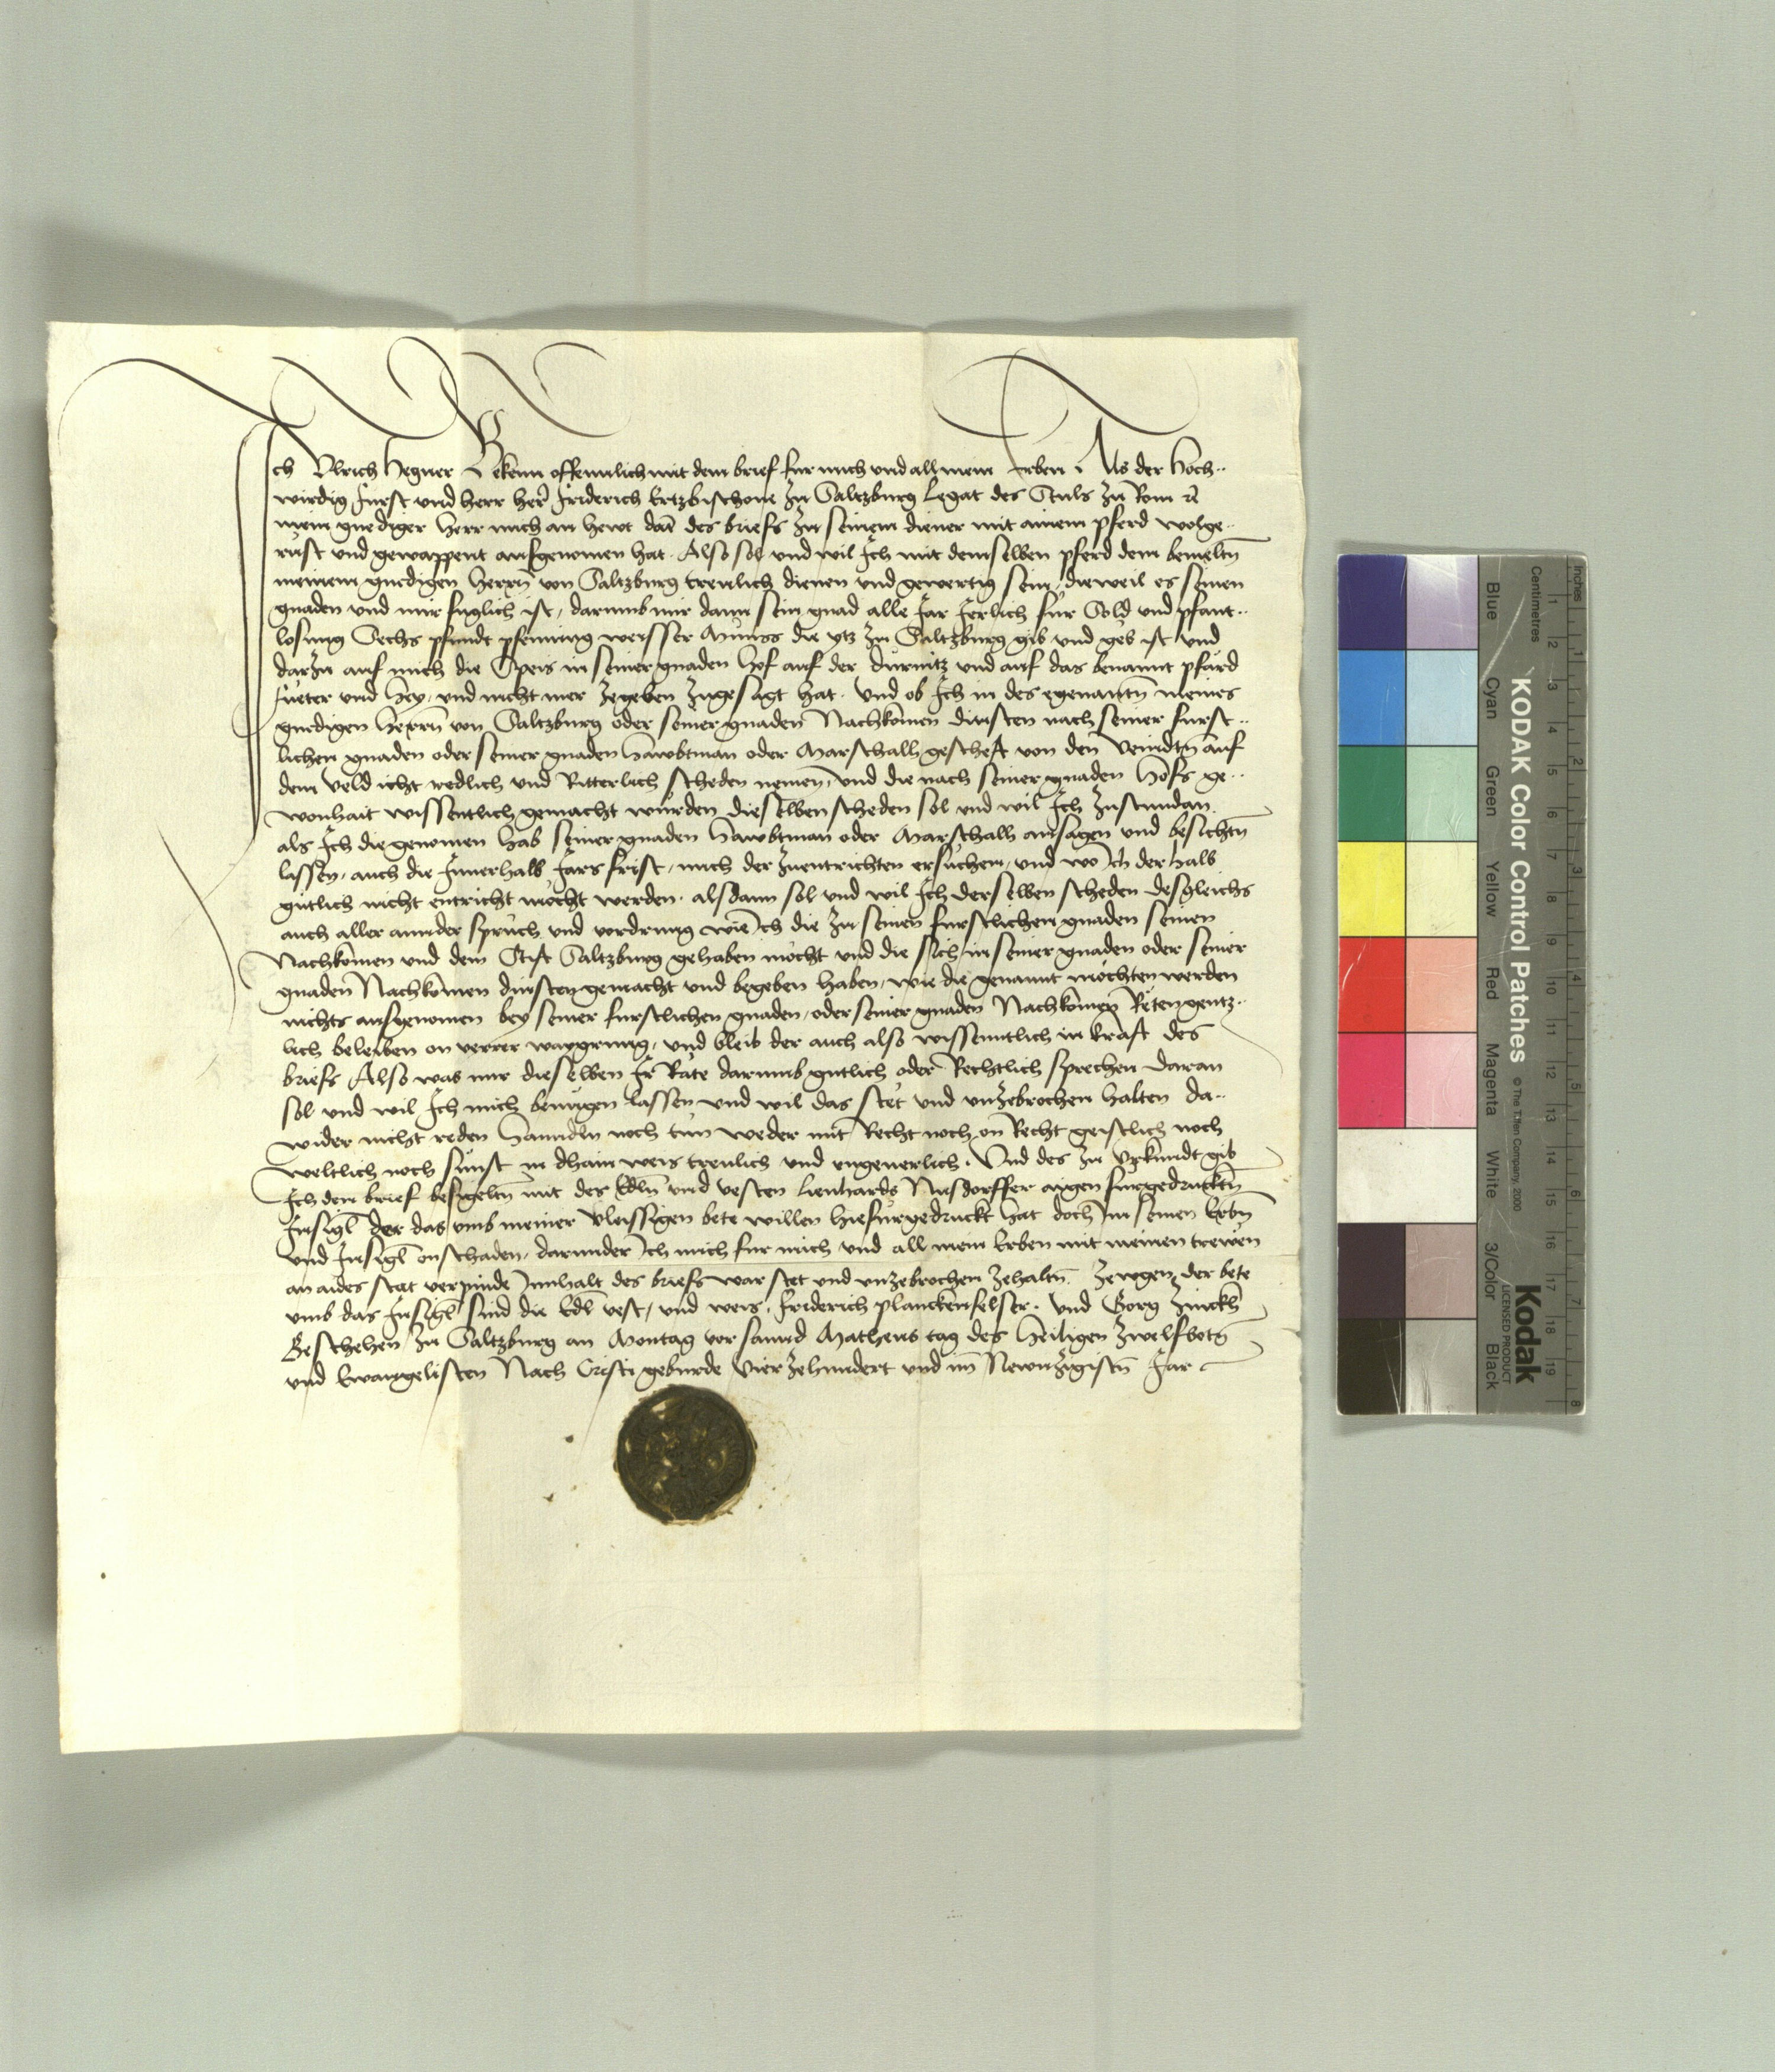 Ich Ulrich Hegner Bekenn offennlich mit dem brief fur mich und all mein Erben Als der Hoch-
wirdig Furst und herr her Friderich Ertzbischove zu Saltzburg Legat des Stuls zu Rom etc
mein gnediger Herr mich an hewt dat des briefs zu seinem diener mit ainem pferd wolge-
rust und gewappent aufgenomen hat. Also sol und wil Ich mit demselben pferd dem bemeltn
meinem gnedigen Herrn von Saltzburg trewlich dienen und gewertig sein, dieweil es seinen
gnaden und mir fuglich ist, darumb mir dann sein gnad alle Jar Jerlich fur Sold und pfant-
losung Sechs pfundt pfenning weisser Munss die ytz zu Saltzburg gib und geb ist und
darzu auf mich die Speis in seiner gnaden Hof auf der durnitz und auf das benannt pfard
fueter und Hey, und nicht mer zegeben zugesagt hat. Und ob Ich in des egenantn meines
gnedigen Herrn von Saltzburg oder seiner gnaden Nachkomen dinsten nach seiner furst-
lichen gnaden oder seiner gnaden Hawbtman oder Marschalh gescheft von den veindtn auf
dem veld icht redlich und Ritterlich scheden nemen, und die nach seiner gnaden Hofs ge-
wonhait wissentlich gemacht wurden dieselben scheden sol und wil Ich zustundan
als Ich die genomen hab seiner gnaden Hawbtman oder Marschalh ansagen und besichtn
lassen, auch die Innerhalb Jars frist, mich der zuentrichten ersuchen, und wo Ich der halb
gutlich nicht entricht mocht werden. alsdann sol und wil Ich derselben scheden desgleichs
auch aller annder spruch und vordrung wie Ich die zu seinen furstlichen gnaden seinen
Nachkomen und dem Stift Saltzburg gehaben mocht und die sich in seiner gnaden oder seiner
gnaden Nachkomen dinsten gemacht und begeben haben, wie die genannt mochten werden
nichts ausgenomen bey seiner furstlichen gnaden, oder seiner gnaden Nachkomen Reten gentz-
lich beleiben on verrer waygrung, und bleib der auch also wissenntlich in kraft des
briefs Also was mir dieselben Ir Räte darumb gutlich oder Rechtlich sprechen daran
sol und wil Ich mich benugen lassen und wil das stet und unzebrochen halten da-
wider nicht reden Hanndln noch tun weder mit Recht noch on Recht geistlich noch
weltlich noch sunst in dhain weis treulich und ungeverlich. Und des zu Urkundt gib
Ich den brief besigeltn mit des Edln und vesten Lienharts Nusdorffer aigen furgedrucktn
Insigl der das umb meiner vleissigen bete willen hiefurgedruckt hat doch Im seinen Erbn
und Insigl on schaden, darunder Ich mich fur mich und all mein Erben mit meinen trewen
an aides stat verpinde Innhalt des briefs war stet und unzebrochen zehaltn. Zewgen der bete
umb das Insigl sind die Edl vest, und weis, Friderich Planckenfelser. und Gorg
Geschehen zu Saltzburg an Montag vor sannd Matheus tag des Heiligen Zwelfbotn
und Ewangelisten Nach Cristi geburde Vierzehundert und im Newnzigistn Jar
KODAK Color Control Patches
© The Tiffen Company, 2000
Kodak
LICENSED PRODUCT
Inches
Centimetres
1 2 3 4 5 6 7 8
1 2 3 4 5 6 7 8 9 10 11 12 13 14 15 16 17 18 19
Blue Cyan Green Yellow Red Magenta White 3/Color Black